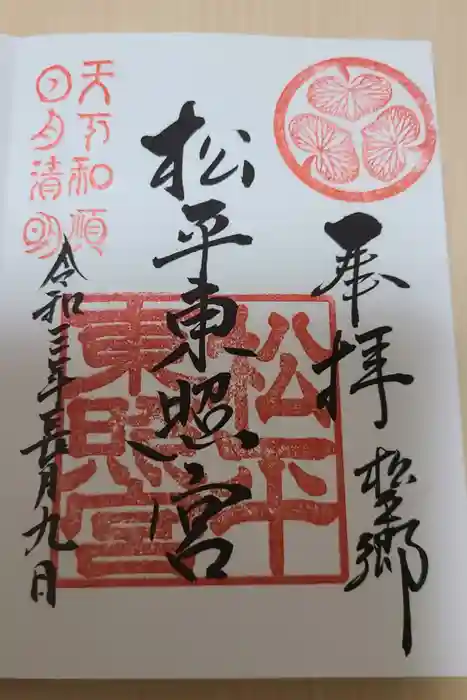 奉拝
松平郷
松平東照宮
松平
東照宮
天下和順
日月清明
令和三年三月九日